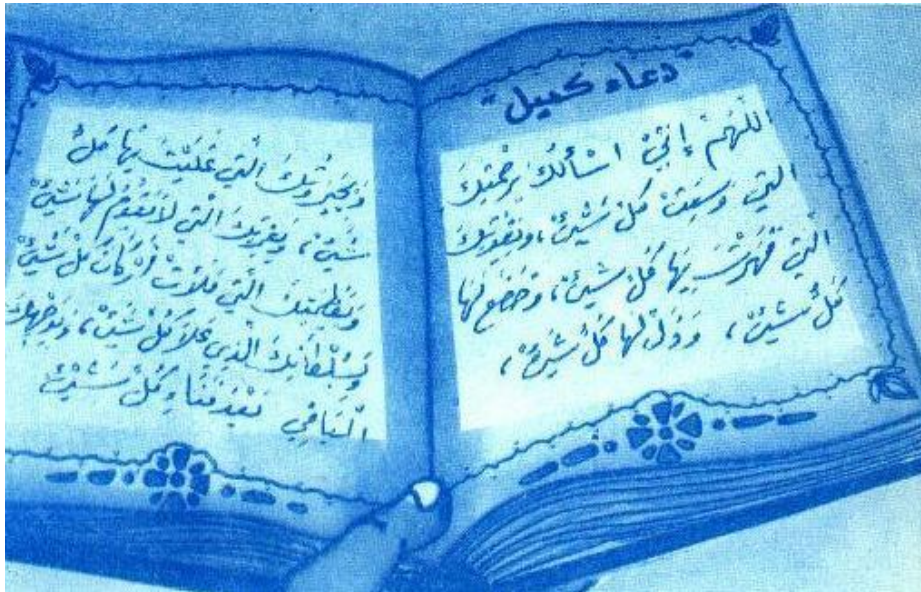 "دعاء كميل"
اللَّهُمَّ إِنِّيْ اسْأَلُكَ بِرَحْمَتِكَ
الَّتِي وَسِعَتْ كُلَّ شَيْئٍ، وَبِقُوَّتِكَ
الَّتِيْ قَهَرْتَ بِهَا كُلَّ شَيْئٍ، وَخَضَعَ لَهَا
كُلُّ شَيْئٍ، وَذَلَّ لَهَا كُلُّ شَيْئٍ،
وَبِجَبَرُوتِكَ الَّتِي غَلَبْتَ بِهَا كُلَّ
شَيْئٍ، وَبِعِزَّتِكَ الَّتِي لَا يَقُومُ لَهَا شَيْئٌ
وَبِعَظَمَتِكَ الَّتِي مَلَأَتْ أَرْكَانَ كُلِّ شَيْئٍ
وَبِسُلْطَانِكَ الَّذِي عَلَا كُلَّ شَيْئٍ، وَبِوَجْهِكَ
الْبَاقِي بَعْدَ فَنَاءِ كُلِّ شَيْئٍ